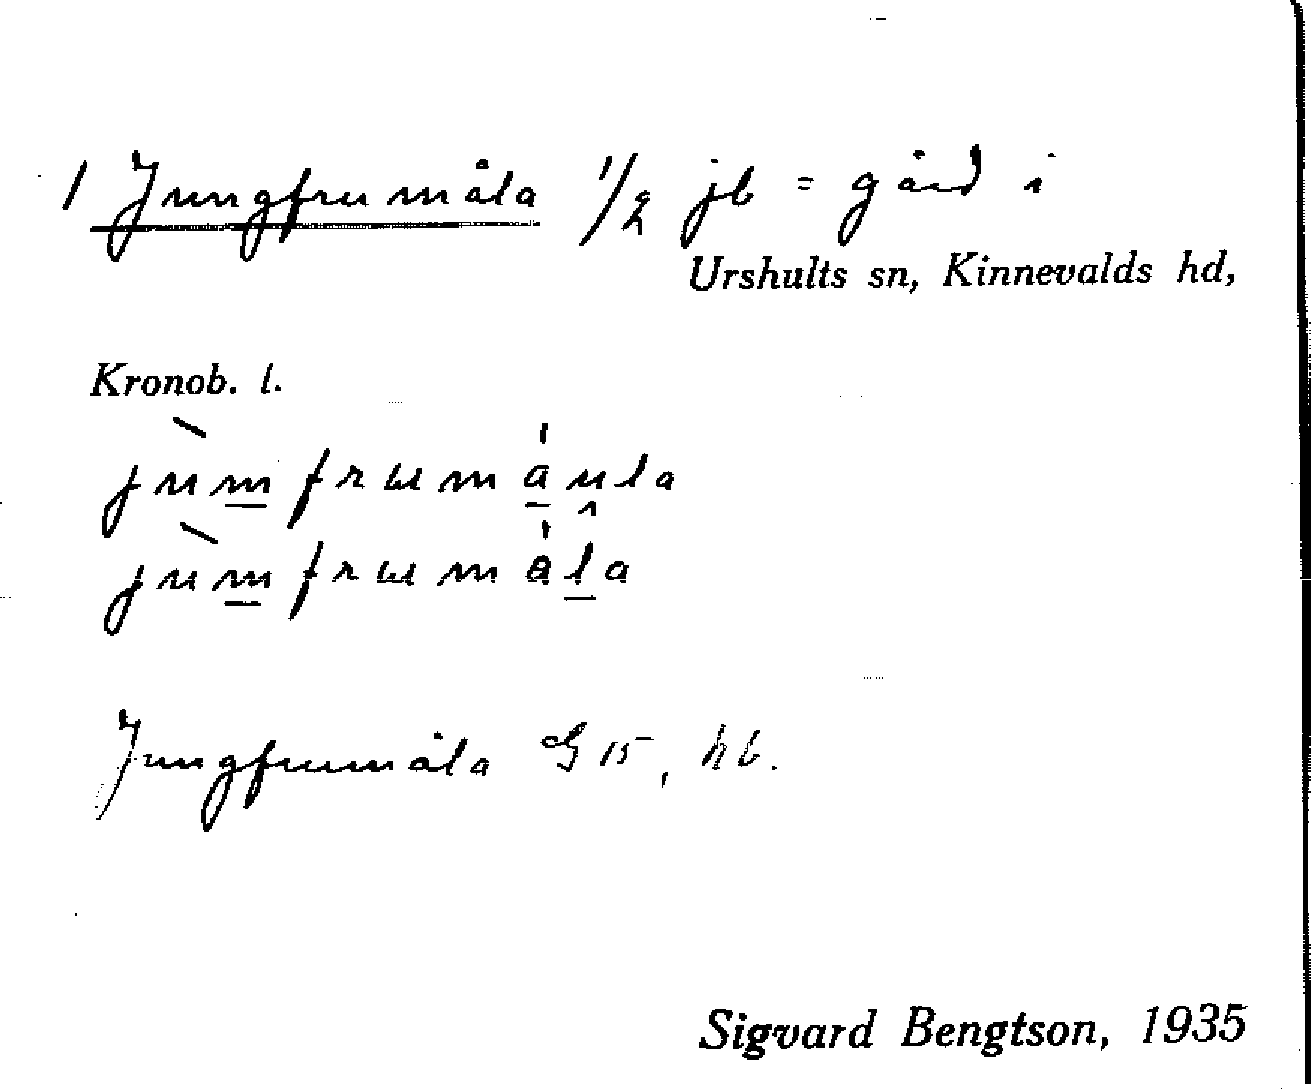 1 Jungfrumåla 1/2 jb = gård i
Urshults sn, Kinnevalds hd,
Kronob. l.
jùmfrɯmáula
jùmfrɯmåla
Jungfrumåla G 15, hb.
Sigvard Bengtson, 1935